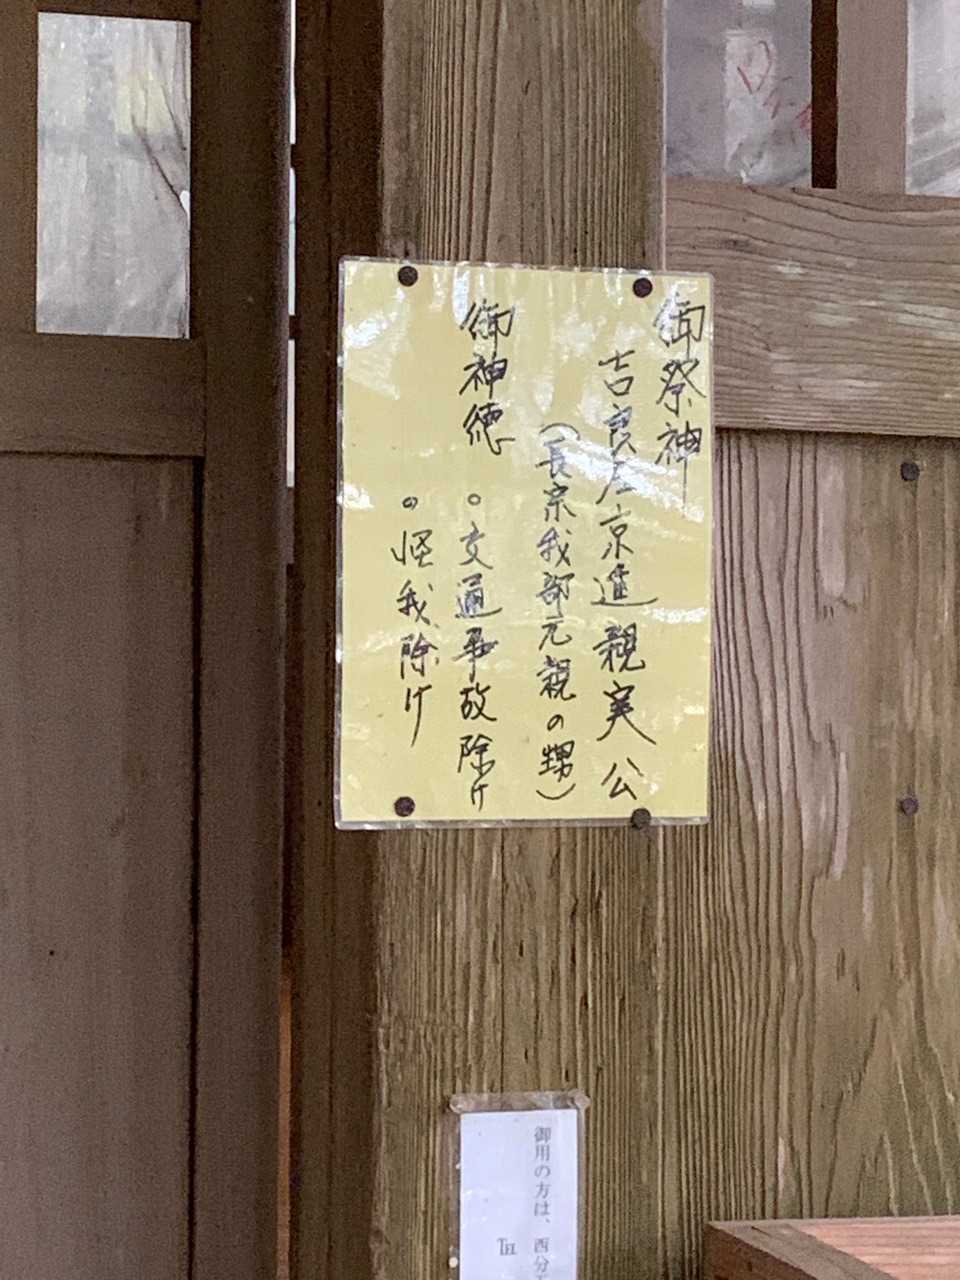 御祭神
吉良左京進親実公
(長宗我部元親の甥)
御神徳
。交通事故除け
。怪我除け
御用の方は、西分
℡